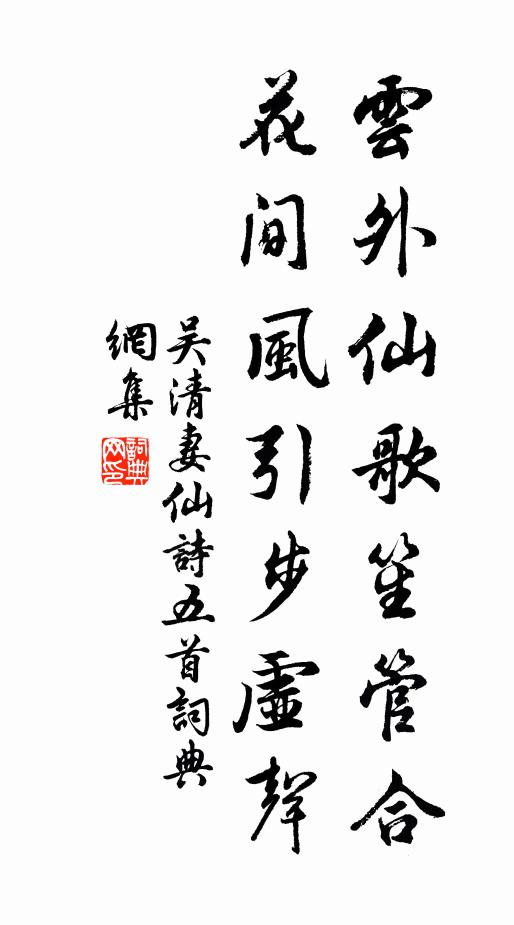 雲外仙歌笙管合
花間風引步虛聲
吳清妻仙詩五首詞典
網集
詞典網印